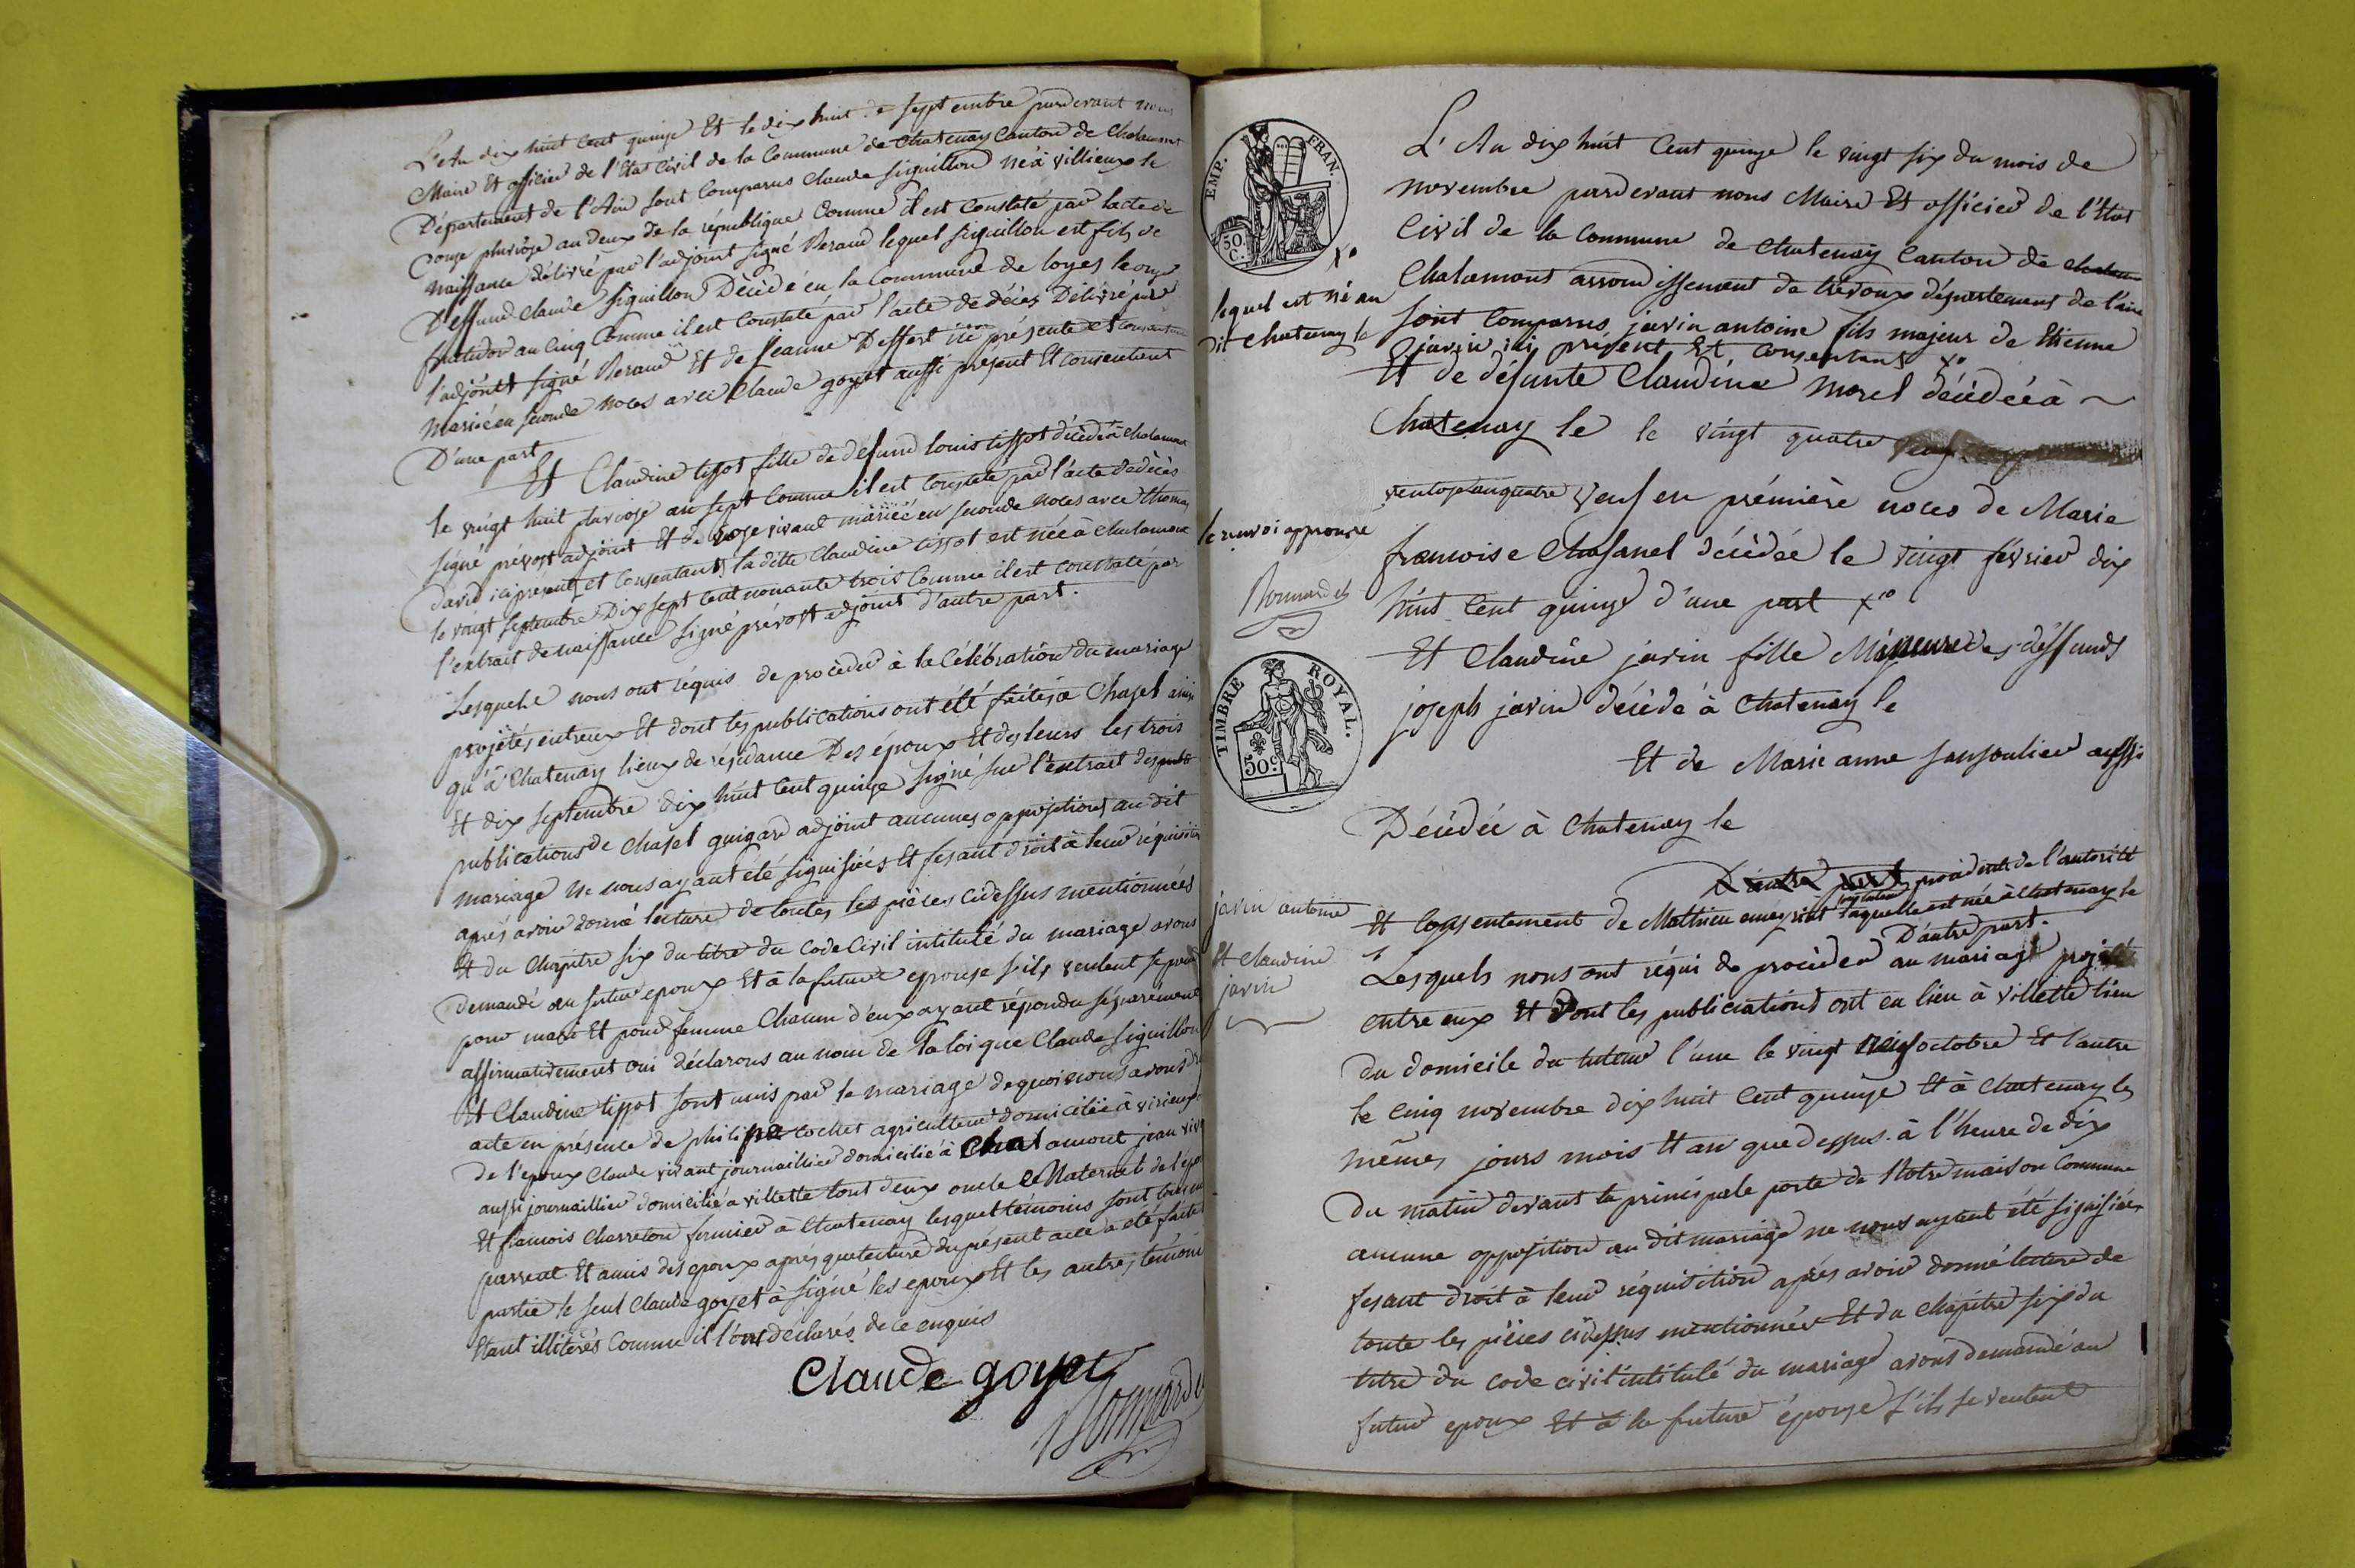 L'An dix huit Cent quinze Et le dix huit de septembre pardevant nous
Maire Et officier de l'Etat Civil de la Commune de Chatenay Canton de Chalamont
Département de l'Ain sont Comparus Claude siguillon né à villieux le
onze pluviose an deux de la république Comme il est Constaté par lacte de
naissance délivré par l'adjoint signé Beraud lequel siguillon est fils de
Deffund Claude siguillon Décédé en la Commune de loyes le onze
fructidor an Cinq Comme il est Constaté par l'acte de décès Délivré par
l'adjoint signé Beraud Et de Jeanne Deffert ici présente et consentante
Mariée en seconde noces avec Claude goyet aussi present Et consentent
D'une part
Et Claudine tissot fille de défund louis tissot décédé à Chalamont
le vingt huit pluviose an sept Comme il est Constaté par l'acte de décès
signé prévost adjoint Et de vivant mariée en seconde noces avec thomas
david ici présent et Consentants la ditte Claudine tissot est née à Chalamont
le vingt septembre Dix sept Cent nonante trois Comme il est constaté par
l'extrait de naissance signé prévost adjoint d'autre part.
Lesquels nous ont réquis de procéder à la Célébration du mariage
projétés entreux Et dont les publications ont été faites a Chasel ainsi
qu'à Chatenay lieux de résidance Des époux Et desleurs les trois
Et dix septembre dix huit Cent quinze signé sur l'extrait des
publications de Chasel guigard adjoint aucunes oppositions au dit
mariage ne nous ayant été signifiées Et fesant droit à leur réquisition
après avoir donné lecture de toutes les pièces cidessus mentionnées
Et du Chapitre six du titre du Code Civil intitulé du mariage avons
Demandé au futur epoux Et à la future epouse s'ils veulent se prendre
pour mari Et pour femme Chacun d'eux ayant répondu séparément
affirmativement oui déclarons au nom de la loi que Claude siguillon
Et Claudine tissot sont unis par le mariage dequoi nous avons
acte en présence de philipe Cochet agriculteur domicilié à
de l'epoux Claude vivant journaillier domicilié à Chalamont jean
aussi journaillier domicilié à villette tout deux oncle Maternel de
Et francois Charreton fermier à Chatenay lesquel témoins sont
parrent Et amis des epoux après que lecture du présent acte a été faite
partie le seul Claude goyet à signé les epoux Et les autres témoins
Etant illitérés Comme il l'ont déclarés de ce enquis
Claude goyet
Bonnardel
EMP. FRAN.
50. C.
L'An dix huit Cent quinze le vingt six du mois de
novembre pardevant nous Maire Et officier de l'Etat
Civil de la Commune de Chatenay Canton de
Chalamont arrondissement de trévoux département de l'ain
sont Comparus javin antoine fils majeur de Etienne
javin ici présent Et consentant
Et de défunte Claudine Morel décédée à
Chatenay le le vingt quatre
ventose an quatre veuf en prémière noces de Marie
francoise Chasanel décédée le vingt février dix
huit Cent quinze d'une part
Et Claudine javin fille Mineure des déffunds
joseph javin décédé à Chatenay le
Et de Marie anne sansoulier aussi
Décédée à Chatenay le
D'autre part de l'autorité
Et Consentement de Mathieu laquelle est née à Chatenay le
D'autre part.
Lesquels nous ont réqui de procéder au mariage projété
entre eux Et Dont les publications ont eu lieu à villette lieu
du domicile du tuteur l'une le vingt neuf octobre Et l'autre
le Cinq novembre dix huit Cent quinze Et à Chatenay les
mêmes jours mois Et an que dessus à l'heure de dix
du matin devant la principale porte de Notre maison Commune
aucune opposition au dit mariage ne nous ayant été signifiées
fesant droit à leur réquisition après avoir donné lecture de
toute les pièces cidessus mentionnées Et du Chapitre six du
titre du code civil intitulé du mariage avons demandé au
futur epoux Et à la future épouse s'ils se veulent
lequel est né au
dit Chatenay le
le renvoi approuvé
Bonnardel
TIMBRE ROYAL.
50.c
javin antoine
Et Claudine
javin